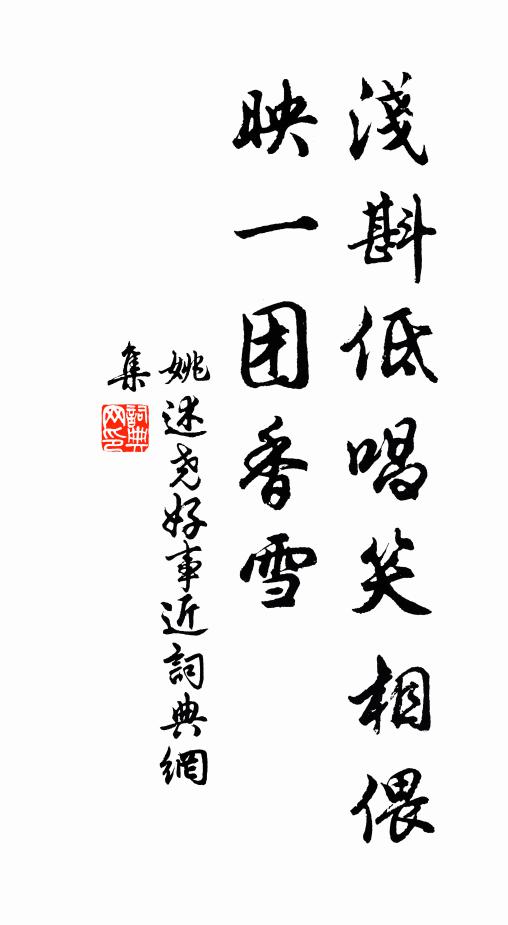 淺斟低唱笑相偎
映一团香雪
姚述尧好事近詞典網
集
詞典
网印